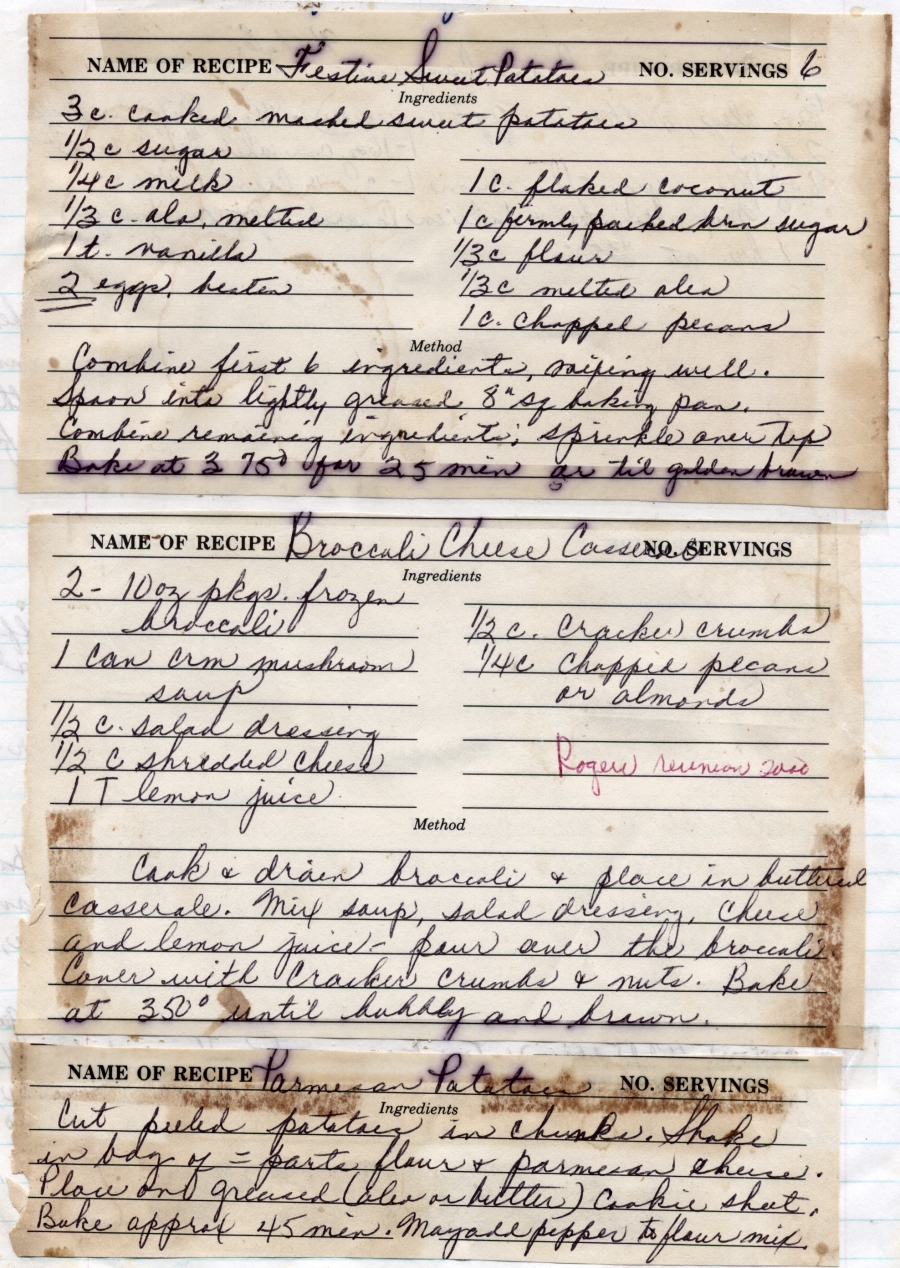 NAME OF RECIPE Festive Sweet Potatoes NO. SERVINGS 6
Ingredients
3 c. cooked mashed sweet potatoes
1/2 c sugar
1/4 c milk
1/3 c. oleo, melted
1 t. vanilla
2 eggs, beaten
1 c. flaked coconut
1 c firmly packed brn sugar
1/3 c flour
1/3 c melted oleo
1 c. chopped pecans
Method
Combine first 6 ingredients, mixing well.
Spoon into lightly greased 8" sq baking pan.
Combine remaining ingredients; sprinkle over top
Bake at 375° for 25 min or til golden brown
NAME OF RECIPE Broccoli Cheese Casserole NO. SERVINGS
Ingredients
2 - 10 oz pkgs. frozen
broccoli
1 can crm mushroom
soup
1/2 c. salad dressing
1/2 c shredded cheese
1 T lemon juice
1/2 c. cracker crumbs
1/4 c chopped pecans
or almonds
Rogers reunion 2000
Method
Cook & drain broccoli & place in buttered
casserole. Mix soup, salad dressing, cheese
and lemon juice - pour over the broccoli
Cover with cracker crumbs & nuts. Bake
at 350° until bubbly and brown.
NAME OF RECIPE Parmesan Potatoes NO. SERVINGS
Ingredients
Cut peeled potatoes in chunks. Shake
in bag of = parts flour & parmesan cheese.
Place on greased (oleo or butter) cookie sheet.
Bake approx 45 min. May add pepper to flour mix.